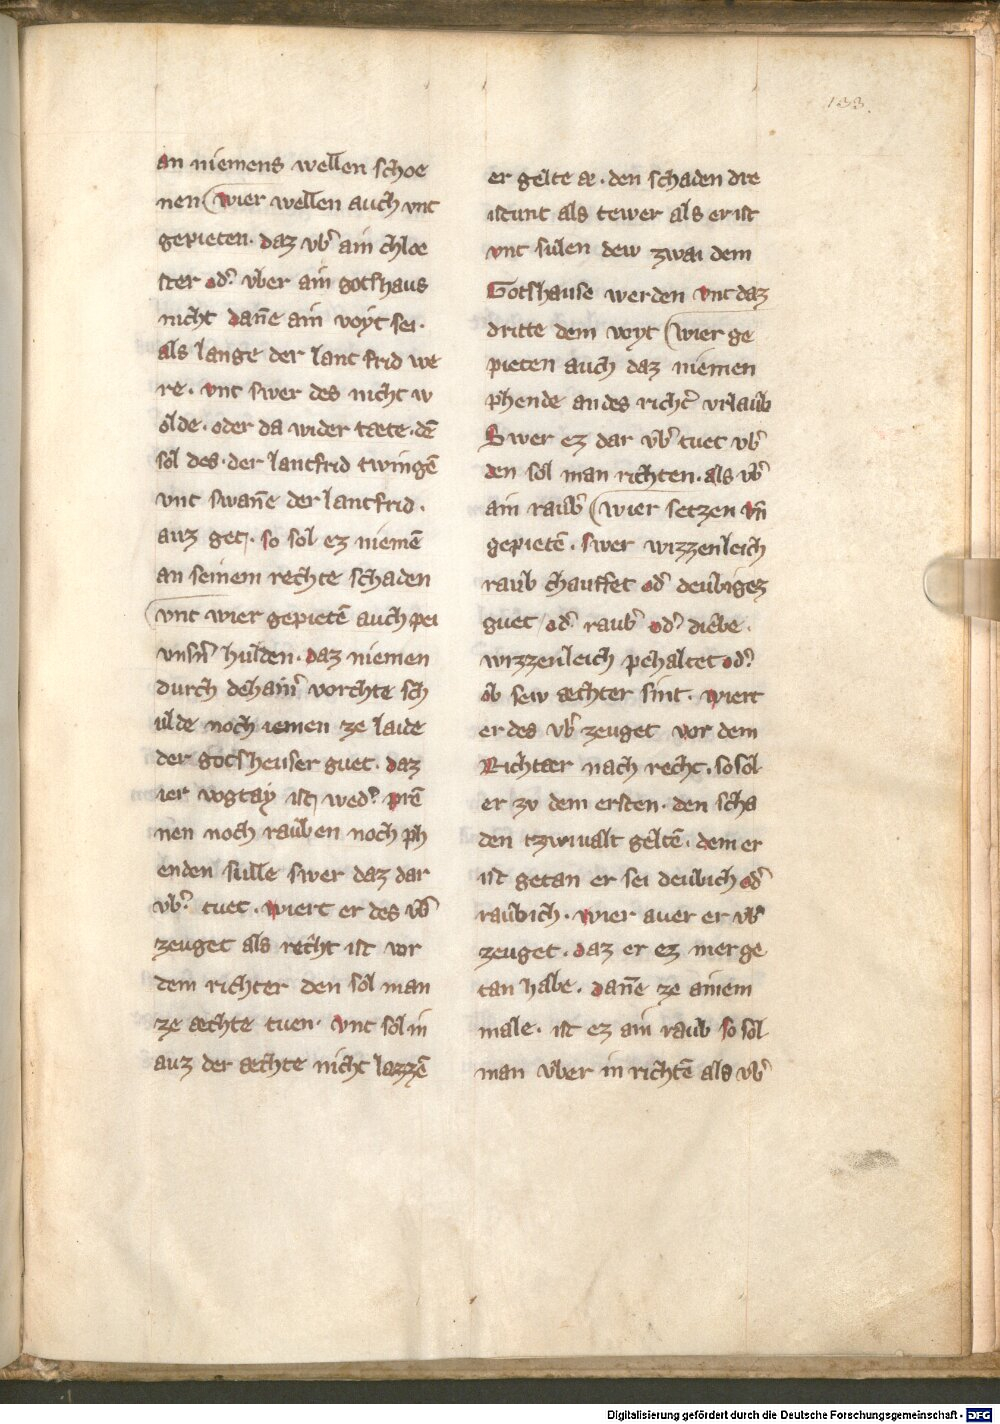 133.
an niemens wellen schoe
nen wier wellen auch vnt
gepieten. daz vb͛ ain chloe
ster od͛ vber ain gotshaus
nicht dan̄e ain voyt sei.
als lange der lant frid we
re. vnt swer des nicht w
olde. oder da wider taete. dē
sol des. der lantfrid twingē
vnt swan̄e der lantfrid.
auz get. so sol ez niemē
an seinem rechte schaden
vnt wier gepietē auch pei
vnsn͛ hulden. daz niemen
durch dehain͛ vorchte sch
ulde noch iemen ze laide
der gotsheuser guet. daz
ier vogtay ist, wed͛ prē
nen noch rauben noch ph
enden sulle swer daz dar
vb͛ tuet. wiert er des vb͛
zeuget als recht ist vor
dem richter den sol man
ze aechte tuen. vnt sol in
auz der aechte nicht lazzē
er gelte ae. den schaden dre
istunt als tewer als er ist
vnt sulen dew zwai dem
Gotshause werden vnt daz
dritte dem voyt wier ge
pieten auch daz niemen
phende an des richt͛ vrlaub
Swer ez dar vb͛ tuet vb͛
den sol man richten. als vb͛
ain raub͛ wier setzen vn̄
gepietē. swer wizzenleich
raub chauffet od͛ deubigez
guet / od͛ raub͛ od͛ diebe.
wizzenleich pehaltet od͛
ob sew aechter sint. wiert
er des vb͛ zeuget vor dem
Richtaer nach recht. so sol
er zv dem ersten. den scha
den tzwiualt geltē. dem er
ist getan er sei deubich od͛
raubich. wier auer er vb͛
zeuget. daz er ez mer ge
tan habe. dan̄e ze ainem
male. ist ez ain raub so sol
man vber in richtē als vb͛
Digitalisierung gefördert durch die Deutsche Forschungsgemeinschaft - DFG